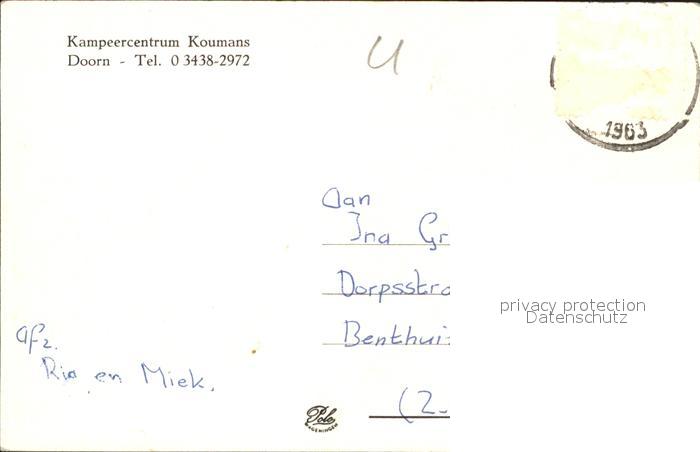 Kampeercentrum Koumans
Doorn - Tel. 0 3438-2972
U
1963
Aan
Ina Gr
Dorpsstra
Benthui
(Z.
privacy protection
Datenschutz
afz.
Ria en Miek.
Pola